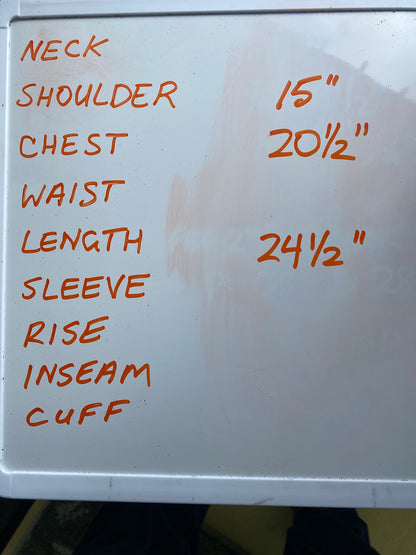 NECK
SHOULDER 15"
CHEST 20½"
WAIST
LENGTH 24½"
SLEEVE
RISE
INSEAM
CUFF